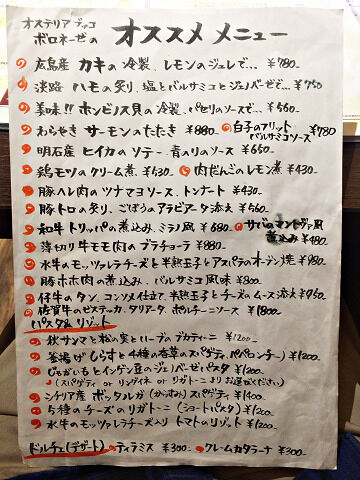 オステリア ブッコ
ボロネーゼの オススメ メニュー
広島産 カキの冷製、レモンのジュレで… ¥780-
淡路 ハモの炙り、塩とバルサミコとジェノバーゼで… ¥750
美味!! ホンビノス貝の冷製、パセリのソースで… ¥560
わらやき サーモンのたたき ¥880
白子のフリット バルサミコソース ¥780
明石産 ヒイカのソテー、青のりのソース ¥650-
鶏モツのクリーム煮 ¥430 肉だんごのレモン煮 ¥430
豚ヘレ肉のツナマヨソース、トンナート ¥430-
豚トロの炙り、ごぼうのアラビアータ添え ¥560-
和牛トリッパの煮込み、ミラノ風 ¥680
サバのマントヴァ風 煮込み ¥480
薄切り牛モモ肉のブラチョーラ ¥880-
水牛のモッツァレラチーズと半熟玉子とアスパラのオーブン焼 ¥980
豚ホホ肉の煮込み、バルサミコ風味 ¥800
仔牛のタン、コンソメ仕立て、半熟玉子とチーズのムース添え ¥950
佐賀牛のビステッカ、タリアータ、ポルチーニソース ¥1800
パスタ&リゾット
秋サンマと松の実とハーブのブカティーニ ¥1200-
釜揚げしらすと4種の春草のスパゲティ、ペペロンチーノ ¥1200
じゃがいもとインゲン豆のジェノバーゼパスタ ¥1200-
(スパゲティ or リングイネ or リガトーニよりお選びください)
シチリア産 ボッタルガ(からすみ)スパゲティ ¥1400
5種のチーズのリガトーニ (ショートパスタ) ¥1200
水牛のモッツァレラチーズ入り トマトのリゾット ¥1200-
ドルチェ(デザート) ティラミス ¥300- クレームカタラーナ ¥300-